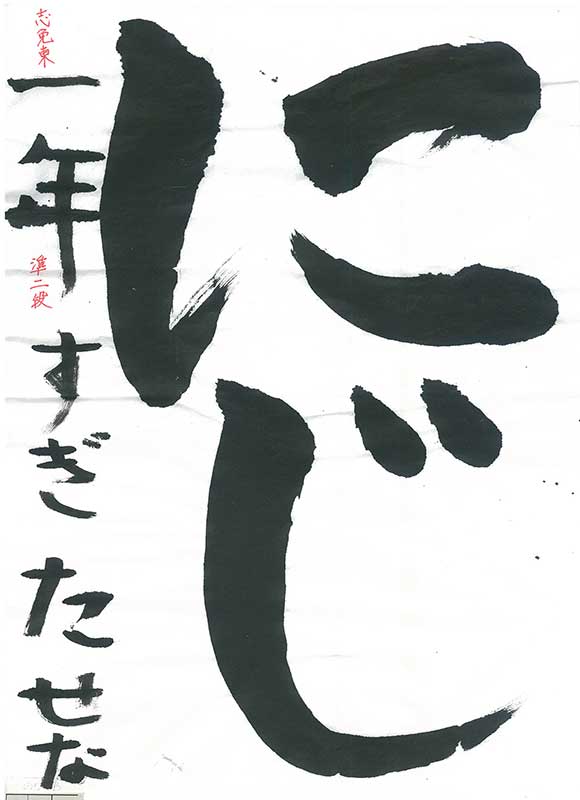 にじ
志免東
一年 すぎ たせな
準二段